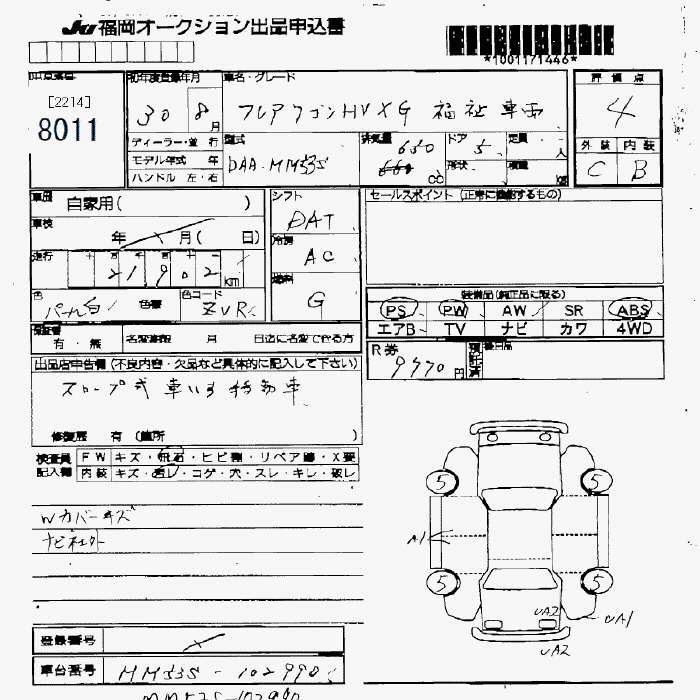 JU 福岡オークション出品申込書
*1001171446*
[2214]
8011
初年度登録年月
30 8月
車名・グレード
フレアワゴンHV XG 福祉車両
評価点
4
ディーラー・並 行
モデル年式 年
ハンドル 左・右
型式
DAA-MM53S
排気量
650
660 cc
ドア
5
形状
定員
人
積載
kg
外装 内装
C B
車歴
自家用( )
車検
年 月( 日)
走行
十 万 千 百 十 一
21,902 km
色
パール白
色替
色コード
ZVR
シフト
DAT
冷房
AC
燃料
G
セールスポイント (正常に機能するもの)
装備品(純正品に限る)
PS PW AW SR ABS
エアB TV ナビ カワ 4WD
保証書
有・無
名変期限 月 日迄に名変できる方
R券
9770 円
預託済
後日品
出品店申告欄(不良内容・欠品など具体的に記入して下さい)
スロープ式 車いす移動車
修復歴 有 (箇所 )
検査員
記入欄
FW キズ・飛石・ヒビ割・リペア跡・X要
内装 キズ・汚レ・コゲ・穴・スレ・キレ・破レ
Wカバーキズ
5 5
A1
5 5
UA2 UA1
UA2
登録番号
車台番号
MM53S-102990
MM53S-102990